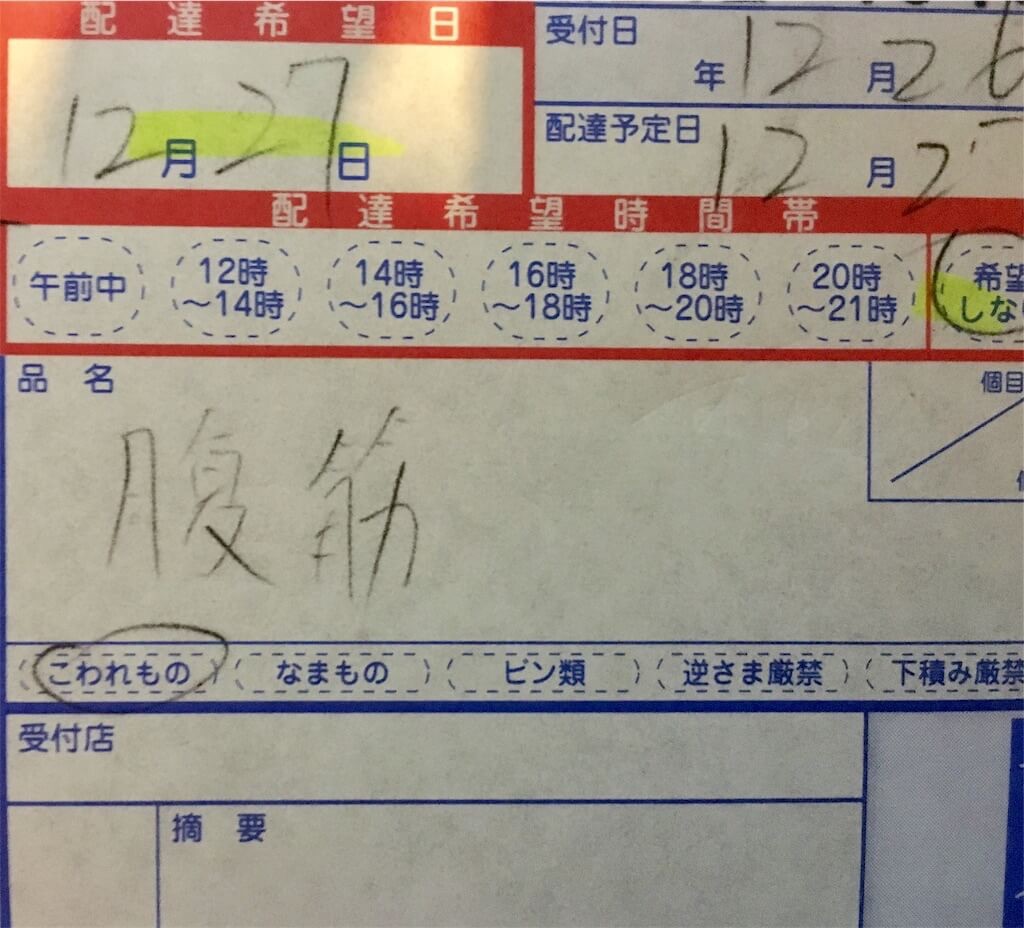 配達希望日
12月27日
受付日
年12月26
配達予定日
12月27
配達希望時間帯
午前中
12時
～14時
14時
～16時
16時
～18時
18時
～20時
20時
～21時
希望
しない
品名
腹筋
個目
こわれもの
なまもの
ビン類
逆さま厳禁
下積み厳禁
受付店
摘要